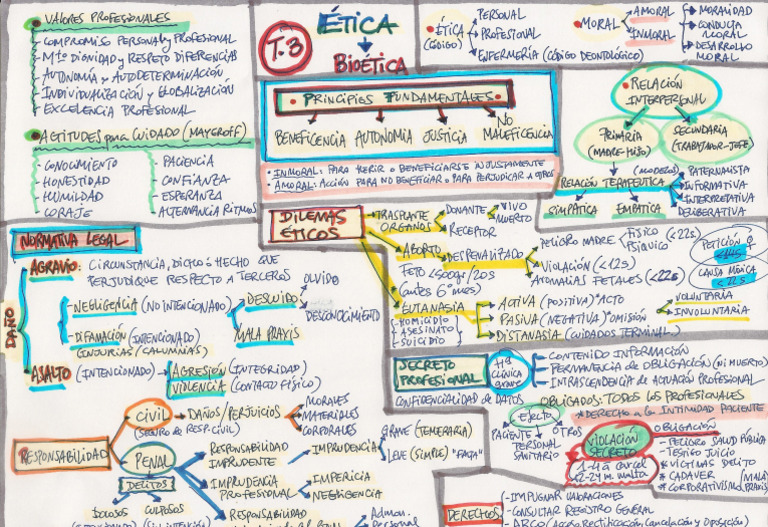 VALORES PROFESIONALES
- COMPROMISO PERSONAL y PROFESIONAL
- Mto DIGNIDAD y RESPETO DIFERENCIAS
- AUTONOMÍA y AUTODETERMINACIÓN
- INDIVIDUALIZACIÓN y GLOBALIZACIÓN
- EXCELENCIA PROFESIONAL
ACTITUDES para CUIDADO (MAYEROFF)
- CONOCIMIENTO
- HONESTIDAD
- HUMILDAD
- CORAJE
- PACIENCIA
- CONFIANZA
- ESPERANZA
- ALTERNANCIA RITMOS
T.3
ÉTICA
BIOÉTICA
ÉTICA (CÓDIGO)
PERSONAL
PROFESIONAL
ENFERMERÍA (CÓDIGO DEONTOLÓGICO)
MORAL
AMORAL
INMORAL
MORALIDAD
CONDUCTA MORAL
DESARROLLO MORAL
PRINCIPIOS FUNDAMENTALES
BENEFICENCIA AUTONOMÍA JUSTICIA NO MALEFICENCIA
• INMORAL: PARA HERIR O BENEFICIARSE INJUSTAMENTE
• AMORAL: ACCIÓN PARA NO BENEFICIAR O PARA PERJUDICAR A OTROS
RELACIÓN INTERPERSONAL
PRIMARIA (MADRE-HIJO)
SECUNDARIA (TRABAJADOR-JEFE)
(MODELOS)
RELACIÓN TERAPEUTICA
SIMPÁTICA EMPÁTICA
- PATERNALISTA
- INFORMATIVA
- INTERPRETATIVA
- DELIBERATIVA
NORMATIVA LEGAL
DAÑO
AGRAVIO: CIRCUNSTANCIA, DICHO ó HECHO QUE
PERJUDIQUE RESPECTO A TERCEROS
- NEGLIGENCIA (NO INTENCIONADO)
DESCUIDO
OLVIDO
DESCONOCIMIENTO
MALA PRAXIS
- DIFAMACIÓN (INTENCIONADO)
(INJURIAS/CALUMNIAS)
ASALTO (INTENCIONADO)
AGRESIÓN (INTEGRIDAD)
VIOLENCIA (CONTACTO FÍSICO)
DILEMAS ÉTICOS
TRASPLANTE ORGANOS
DONANTE
VIVO
MUERTO
RECEPTOR
ABORTO
FETO <500gr/20s
(antes 6º mes)
DESPENALIZADO
PELIGRO MADRE
FÍSICO
PSÍQUICO
(<22s)
VIOLACIÓN (<12s)
ANOMALÍAS FETALES (<22s)
PETICIÓN ♀
<14s
CAUSA MÉDICA
<22s
EUTANASIA
- HOMICIDIO
- ASESINATO
- SUICIDIO
ACTIVA (POSITIVA) *ACTO
PASIVA (NEGATIVA) *OMISIÓN
DISTANASIA (CUIDADOS TERMINAL)
VOLUNTARIA
INVOLUNTARIA
SECRETO PROFESIONAL
CONFIDENCIALIDAD DE DATOS
Hª CLÍNICA
- CONTENIDO INFORMACIÓN
- PERMANENCIA de OBLIGACIÓN (NI MUERTO)
- INTRASCENDENCIA DE ACTUACIÓN PROFESIONAL
OBLIGADOS: TODOS LOS PROFESIONALES
*DERECHO a la INTIMIDAD PACIENTE
Efecta
PACIENTE
PERSONAL SANITARIO
OTROS
VIOLACIÓN SECRETO
1-4a CARCEL
12-24m. multa
OBLIGACIÓN
- PELIGRO SALUD PÚBLICA
- TESTIGO JUICIO
* VÍCTIMAS DELITO
* CADAVER
* CORPORATIVISMO (MALA PRAXIS)
RESPONSABILIDAD
CIVIL
(SEGURO de RESP. CIVIL)
DAÑOS/PERJUICIOS
MORALES
MATERIALES
CORPORALES
PENAL
DELITOS
DOLOSOS
CULPOSOS
RESPONSABILIDAD IMPRUDENTE
IMPRUDENCIA
GRAVE (TEMERARIA)
LEVE (SIMPLE) "FALTA"
IMPRUDENCIA PROFESIONAL
IMPERICIA
NEGLIGENCIA
RESPONSABILIDAD
DERECHOS
- IMPUGNAR VALORACIONES
- CONSULTAR REGISTRO GENERAL